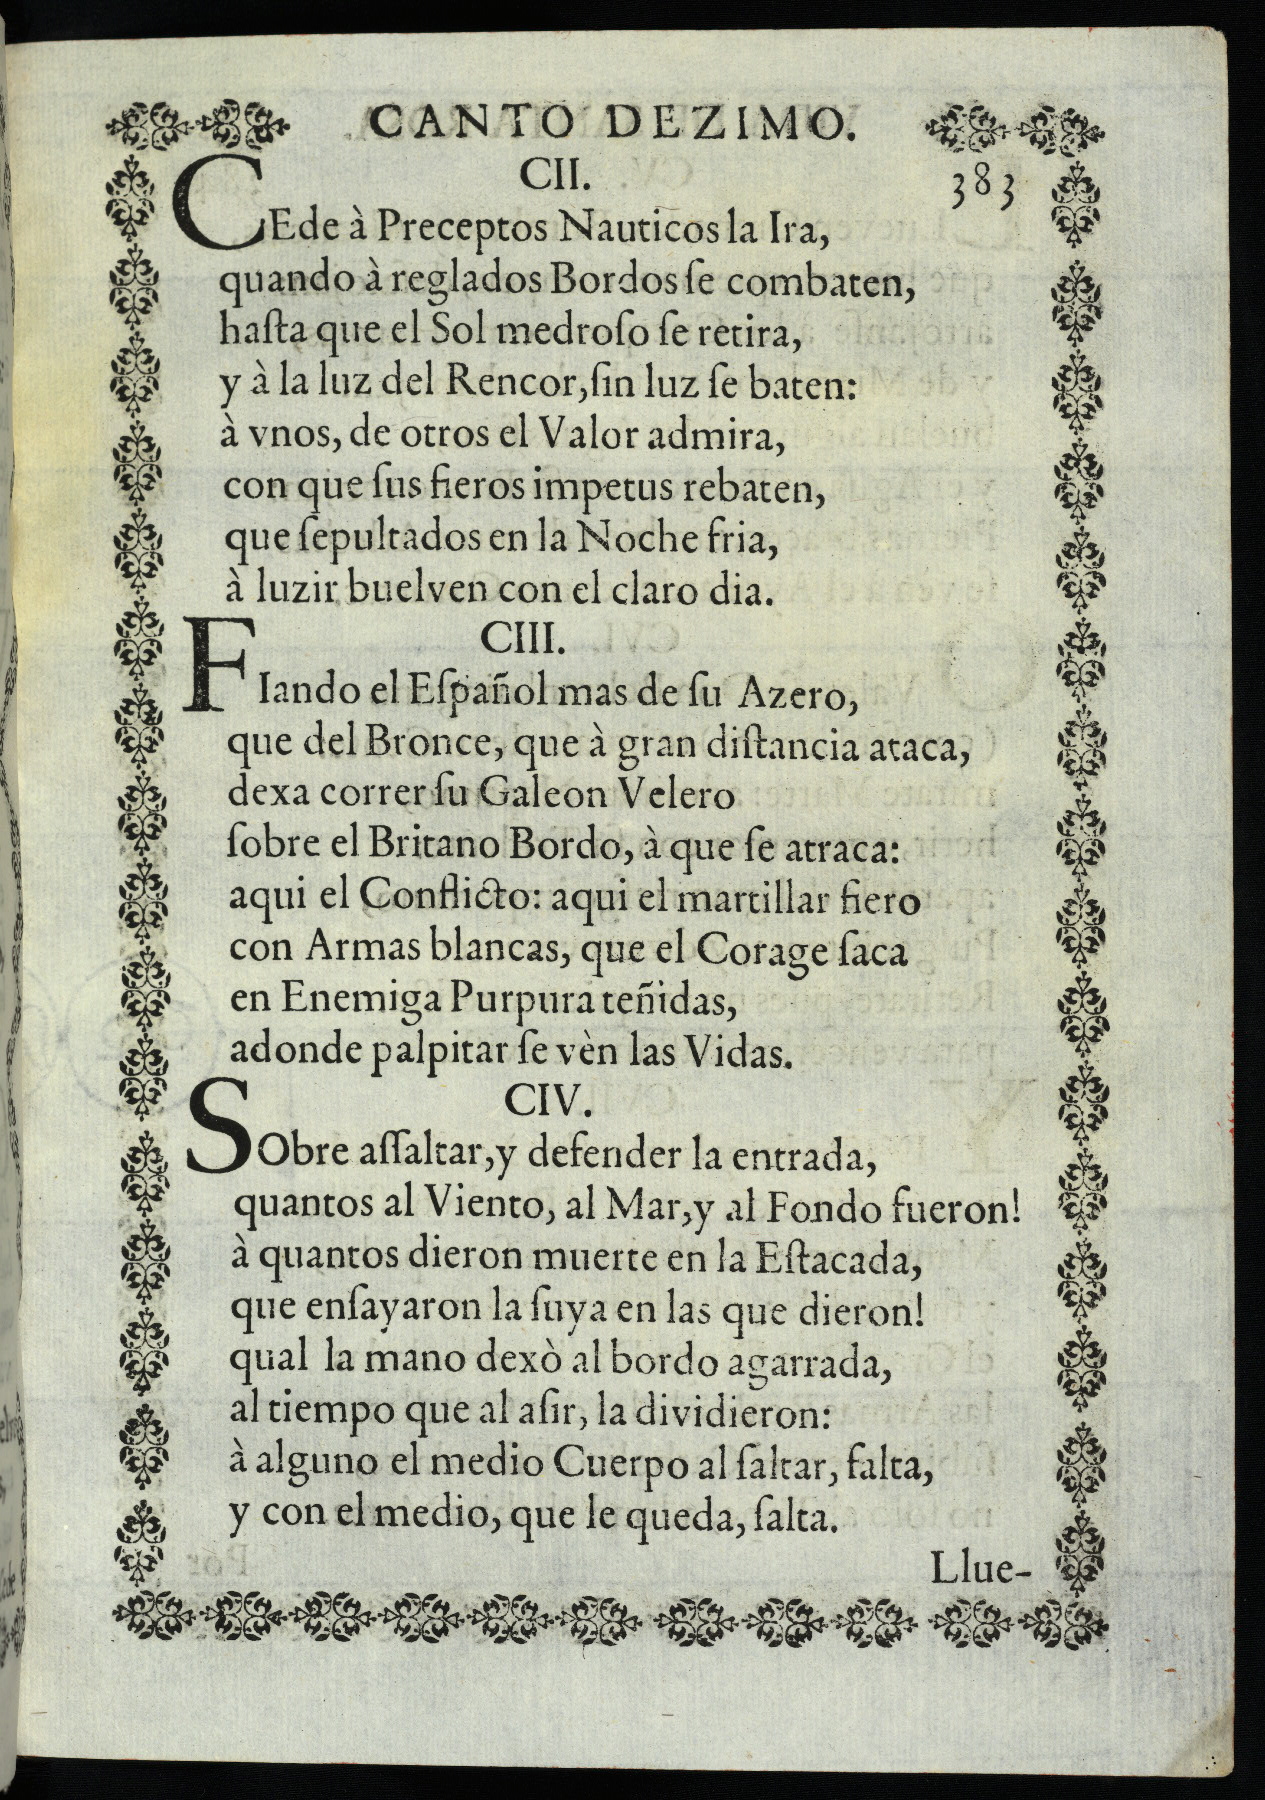 CANTO DEZIMO.
383
CII.
CEde à Preceptos Nauticos la Ira,
quando à reglados Bordos ſe combaten,
haſta que el Sol medroſo ſe retira,
y à la luz del Rencor, ſin luz ſe baten:
à vnos, de otros el Valor admira,
con que ſus fieros impetus rebaten,
que ſepultados en la Noche fria,
à luzir buelven con el claro dia.
CIII.
FIando el Eſpañol mas de ſu Azero,
que del Bronce, que à gran diſtancia ataca,
dexa correr ſu Galeon Velero
ſobre el Britano Bordo, à que ſe atraca:
aqui el Conflicto: aqui el martillar fiero
con Armas blancas, que el Corage ſaca
en Enemiga Purpura teñidas,
adonde palpitar ſe vèn las Vidas.
CIV.
SObre aſſaltar, y defender la entrada,
quantos al Viento, al Mar, y al Fondo fueron!
à quantos dieron muerte en la Eſtacada,
que enſayaron la ſuya en las que dieron!
qual la mano dexò al bordo agarrada,
al tiempo que al aſir, la dividieron:
à alguno el medio Cuerpo al ſaltar, falta,
y con el medio, que le queda, ſalta.
Llue-